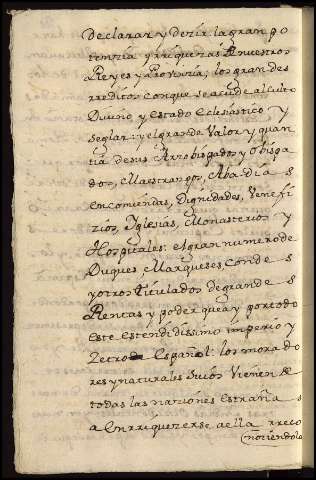 declarar y dezir la gran po
tenzia y rriquezas de nuestros
Reyes y Patronzia; los grandes
rreditos con que se acude al culto
Divino, y estado eclesiastico y
seglar: y el grande valor y quan
tia de sus Arzobispados y obispa
dos, Maestrazgos, Abadias
encomiendas, Dignidades, Venefi
zios, Yglesias, Monasterios y
Hospitales: el gran numero de
Duques, Marqueses, Conde s
y otros Titulados de grande s
Rentas y poder que ay por todo
este estendidissimo imperio y
Zetro Español: los morado
res y naturales Vienen de
todas las naciones estraña s
a enrriquezerse a ella rreco
noziendolo